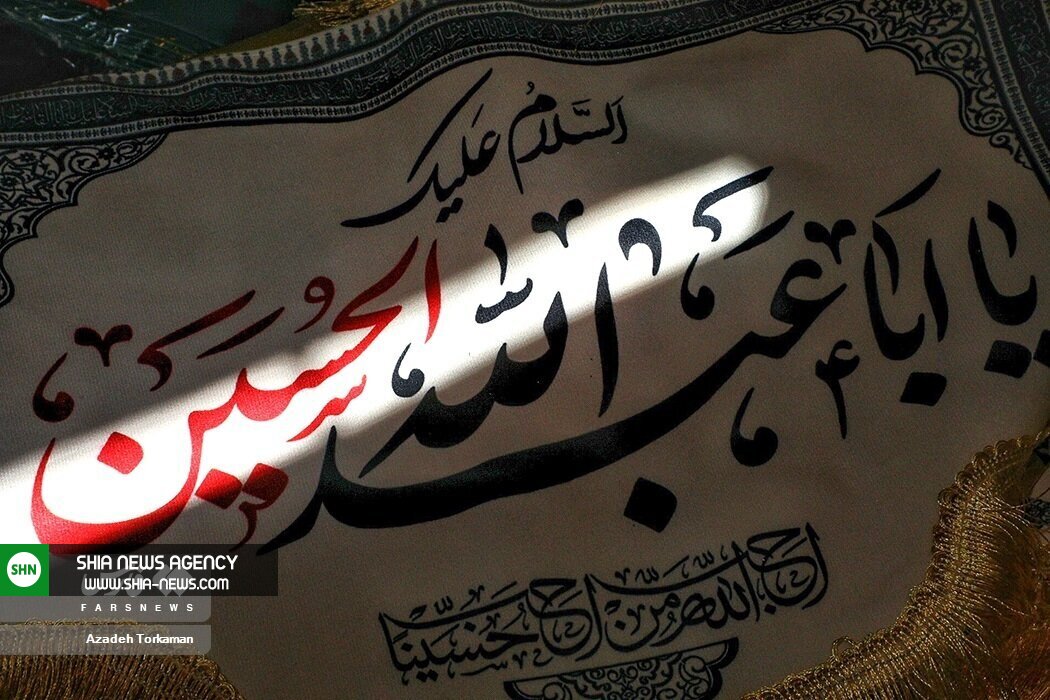 السَّلامُ عَلَيك
يا ابا عبد الله الحسین
احب الله من احب حسینا
SHIA NEWS AGENCY
SHN
WWW.SHIA-NEWS.COM
FARSNEWS
Azadeh Torkaman